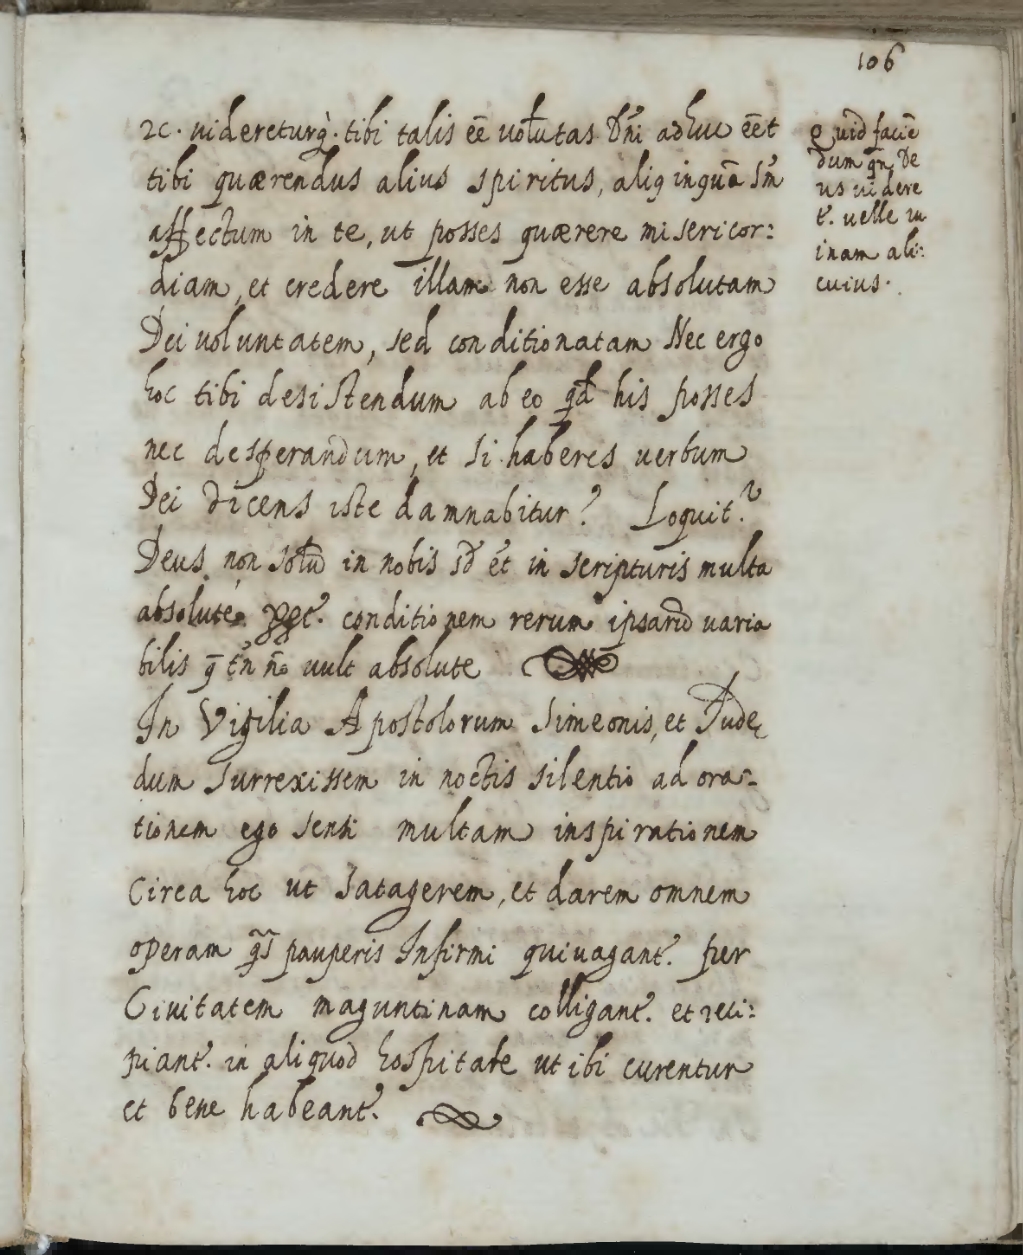 106
2c. uidereturq̀. tibi talis eē uolūtas Dñi adhuc eēt
tibi quærendus alius spiritus, aliq inquā Sm̃
affectum in te, ut posses quærere misericor:
diam, et credere illam non esse absolutam
Dei uoluntatem, sed conditionatam Nec ergo
hoc tibi desistendum ab eo qd his posses
nec desperandum, et si haberes uerbum
Dei dicens iste damnabitur? Loquit̃.
Deus non solũ in nobis sd̃ et̃ in scripturis multa
absolute conditionem rerum ipsarũ uaria
bilis q̄ tñ nõ uult absolute
In Vigilia Apostolorum Simeonis, et Iude
dum surrexissem in noctis silentio ad ora:
tionem ego sensi multam inspirationem
Circa hoc ut satagerem, et darem omnem
operam qs̃ pauperis Infirmi qui uagant̃. per
Ciuitatem maguntinam colligant̃. et reci:
piant̃. in aliquod hospitale ut ibi curentur
et bene habeant̃.
Quid faciē
dum qñ De
us uidere
t̃. uelle ru
inam ali:
cuius.